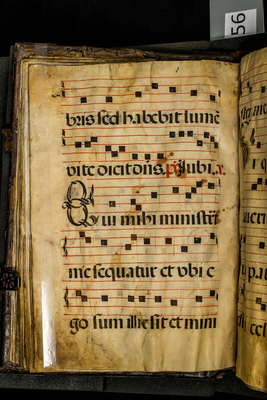 56
bris sed habebit lumē
vite dicit dn̄s. ps̄ Iubi.
Qui mihi ministrat
me sequatur et vbi e
go sum illic sit et mini